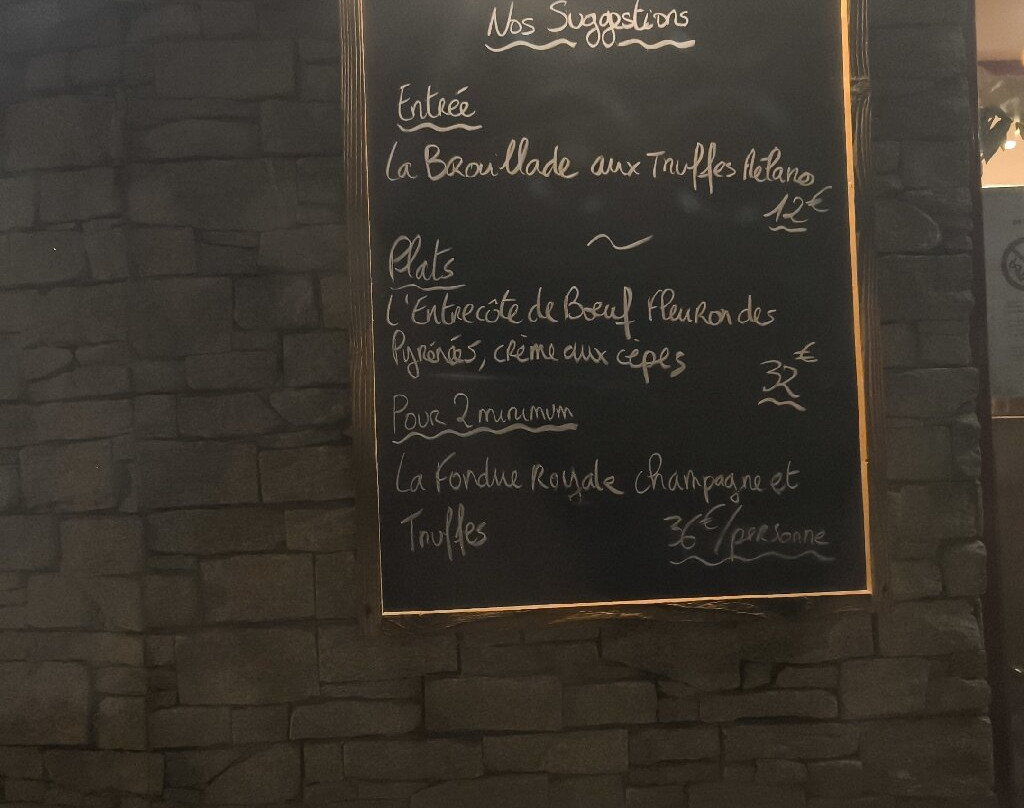 Nos Suggestions
Entrée
La Brouillade aux Truffes Mélano
12€
Plats
L'Entrecôte de Bœuf Fleuron des
Pyrénées, crème aux cèpes
32€
Pour 2 minimum
La Fondue Royale champagne et
Truffes
36€/personne